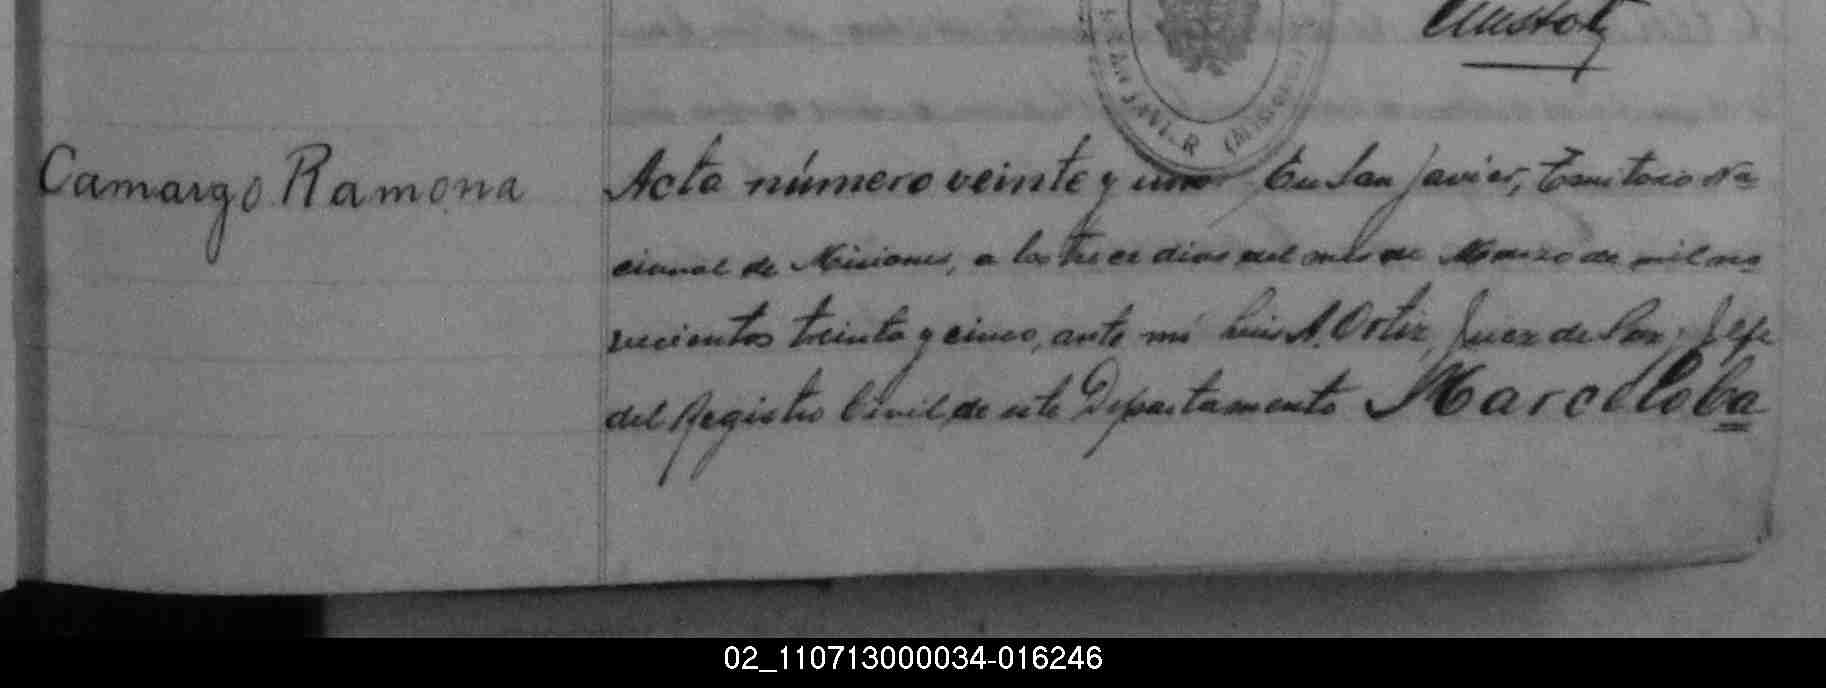 SAN JAVIER (MISIONES)
Camargo Ramona
Acta número veinte y uno En San Javier, Territorio Na
cional de Misiones, a los trece dias del mes de Marzo de mil no
vecientos treinta y cinco, ante mi Luis A. Ortiz, Juez de Paz y Jefe
del Registro Civil de este Departamento Marcelo Ca
02_110713000034-016246